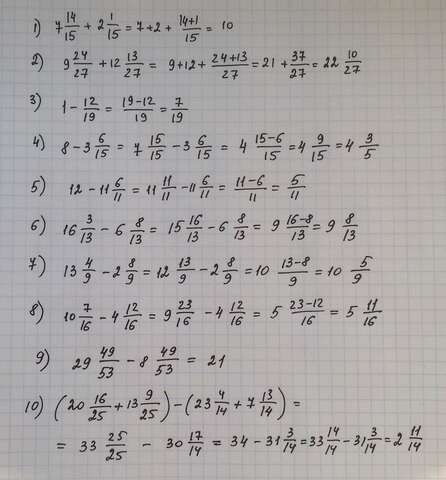 1) 7 14/15 + 2 1/15 = 7 + 2 + (14+1)/15 = 10
2) 9 24/27 + 12 13/27 = 9 + 12 + (24+13)/27 = 21 + 37/27 = 22 10/27
3) 1 - 12/19 = (19-12)/19 = 7/19
4) 8 - 3 6/15 = 7 15/15 - 3 6/15 = 4 (15-6)/15 = 4 9/15 = 4 3/5
5) 12 - 11 6/11 = 11 11/11 - 11 6/11 = (11-6)/11 = 5/11
6) 16 3/13 - 6 8/13 = 15 16/13 - 6 8/13 = 9 (16-8)/13 = 9 8/13
7) 13 4/9 - 2 8/9 = 12 13/9 - 2 8/9 = 10 (13-8)/9 = 10 5/9
8) 10 7/16 - 4 12/16 = 9 23/16 - 4 12/16 = 5 (23-12)/16 = 5 11/16
9) 29 49/53 - 8 49/53 = 21
10) (20 16/25 + 13 9/25) - (23 4/14 + 7 13/14) =
= 33 25/25 - 30 17/14 = 34 - 31 3/14 = 33 14/14 - 31 3/14 = 2 11/14